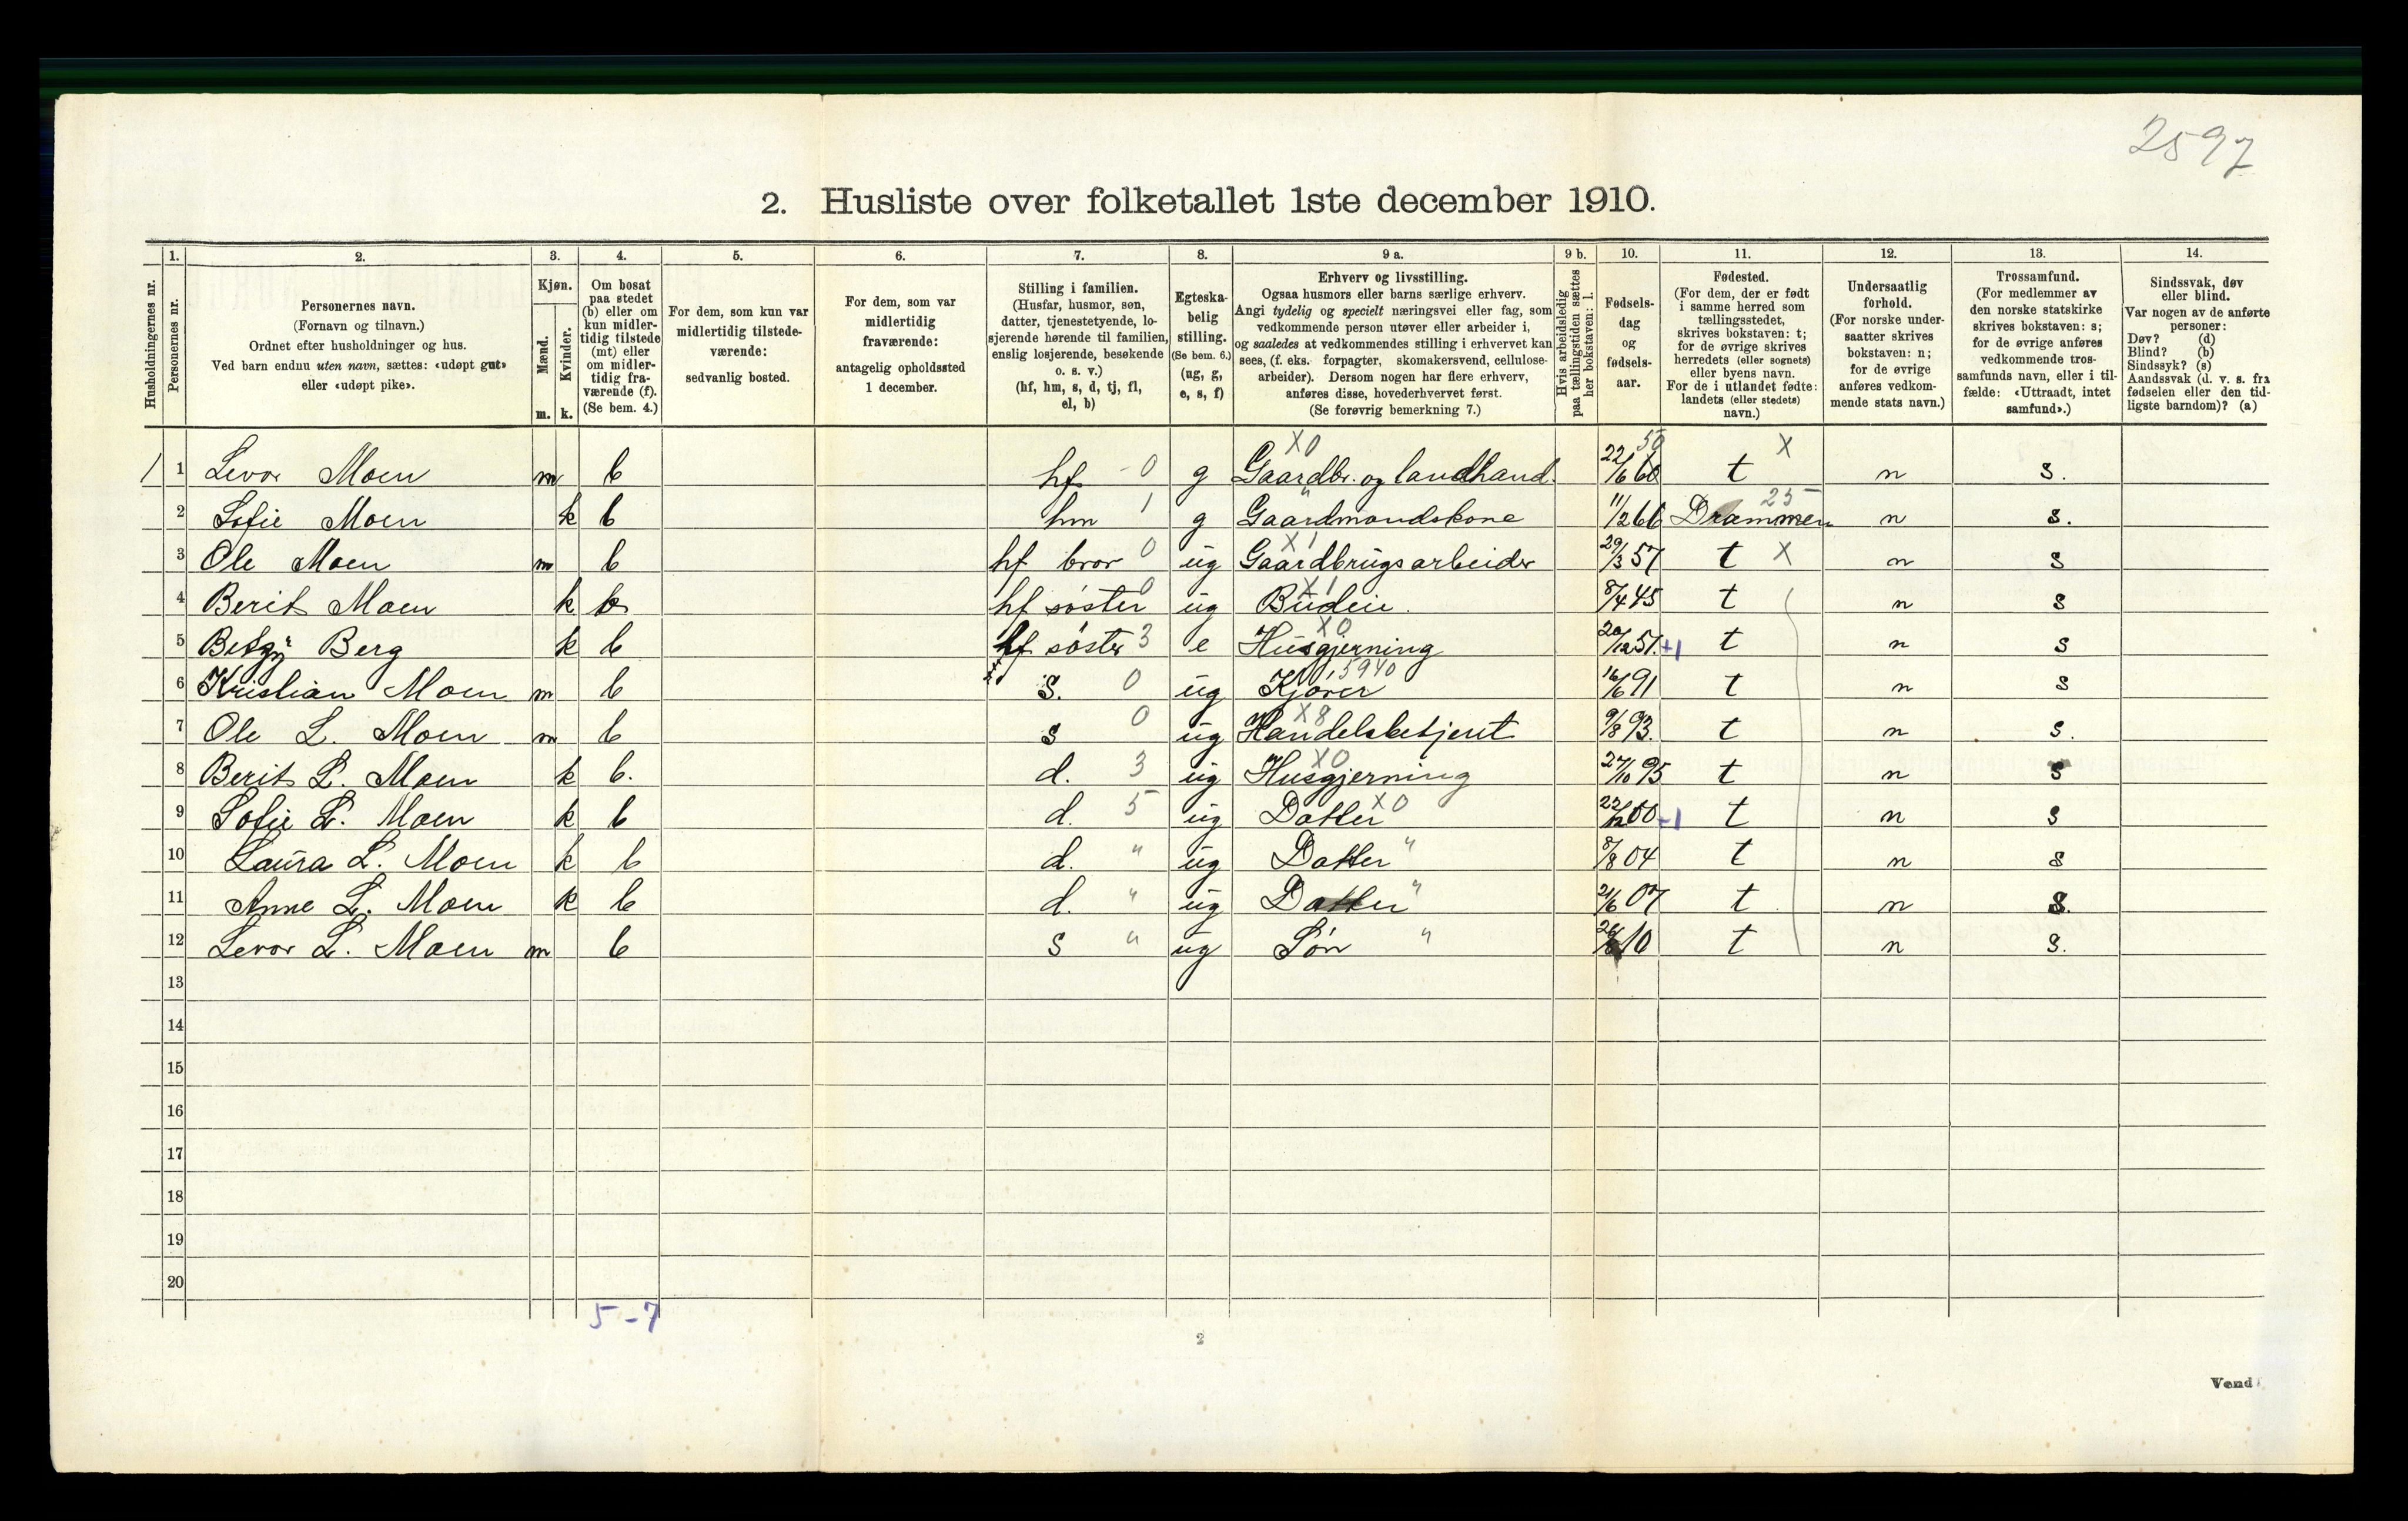 2597
2. Husliste over folketallet 1ste december 1910.
1. 2. 3. 4. 5. 6. 7. 8. 9 a. 9 b. 10. 11. 12. 13. 14.
Husholdningernes nr.
Personernes nr.
Personernes navn.
(Fornavn og tilnavn.)
Ordnet efter husholdninger og hus.
Ved barn endnu uten navn, sættes: «udøpt gut»
eller «udøpt pike».
Kjøn.
Mænd.
Kvinder.
m. k.
Om bosat
paa stedet
(b) eller om
kun midler-
tidig tilstede
(mt) eller
om midler-
tidig fra-
værende (f).
(Se bem. 4.)
For dem, som kun var
midlertidig tilstede-
værende:
sedvanlig bosted.
For dem, som var
midlertidig
fraværende:
antagelig opholdssted
1 december.
Stilling i familien.
(Husfar, husmor, søn,
datter, tjenestetyende, lo-
sjerende hørende til familien,
enslig losjerende, besøkende
o. s. v.)
(hf, hm, s, d, tj, fl,
el, b)
Egteska-
belig
stilling.
(Se bem. 6.)
(ug, g,
e, s, f)
Erhverv og livsstilling.
Ogsaa husmors eller barns særlige erhverv.
Angi tydelig og specielt næringsvei eller fag, som
vedkommende person utøver eller arbeider i,
og saaledes at vedkommendes stilling i erhvervet kan
sees, (f. eks. forpagter, skomakersvend, cellulose-
arbeider). Dersom nogen har flere erhverv,
anføres disse, hovederhvervet først.
(Se forøvrig bemerkning 7.)
Hvis arbeidsledig
paa tællingstiden sættes
her bokstaven: l.
Fødsels-
dag
og
fødsels-
aar.
Fødested.
(For dem, der er født
i samme herred som
tællingsstedet,
skrives bokstaven: t;
for de øvrige skrives
herredets (eller sognets)
eller byens navn.
For de i utlandet fødte:
landets (eller stedets)
navn.)
Undersaatlig
forhold.
(For norske under-
saatter skrives
bokstaven: n;
for de øvrige
anføres vedkom-
mende stats navn.)
Trossamfund.
(For medlemmer av
den norske statskirke
skrives bokstaven: s;
for de øvrige anføres
vedkommende tros-
samfunds navn, eller i til-
fælde: «Uttraadt, intet
samfund».)
Sindssvak, døv
eller blind.
Var nogen av de anførte
personer:
Døv? (d)
Blind? (b)
Sindssyk? (s)
Aandssvak (d. v. s. fra
fødselen eller den tid-
ligste barndom)? (a)
1 1 Levor Moen m b hf - 0 g X0 Gaardbr. og landhand. 22/6 60 50 t X n s.
2 Sofie Moen k b hm 1 g " Gaardmandskone 11/2 66 Drammen 25 n s.
3 Ole Moen m b hf bror 0 ug X1 Gaardbrugsarbeider 29/3 57 t X n s
4 Berit Moen k b hf søster 0 ug X1 Budeie. 8/4 45 t n s
5 Betzy Berg k b hf søster 3 e X0 Husgjerning 20/12 51. +1 t n s
6 Kristian Moen m b s. 0 ug 5940 Kjører 16/6 91 t n s
7 Ole L. Moen m b s 0 ug X8 Handelsbetjent 9/8 93. t n s.
8 Berit L. Moen k b. d. 3 ug X0 Husgjerning 27/10 95 t n s
9 Sofie L. Moen k b d. 5 ug Datter X0 22/12 00 -1 t n s
10 Laura L. Moen k b d. " ug Datter " 8/8 04 t n s
11 Anne L. Moen k b d. " ug Datter " 21/6 07 t n s.
12 Levor L. Moen m b s " ug Søn " 10 t n s.
13
14
15
16
17
18
19
20
5 - 7
2
Vend!